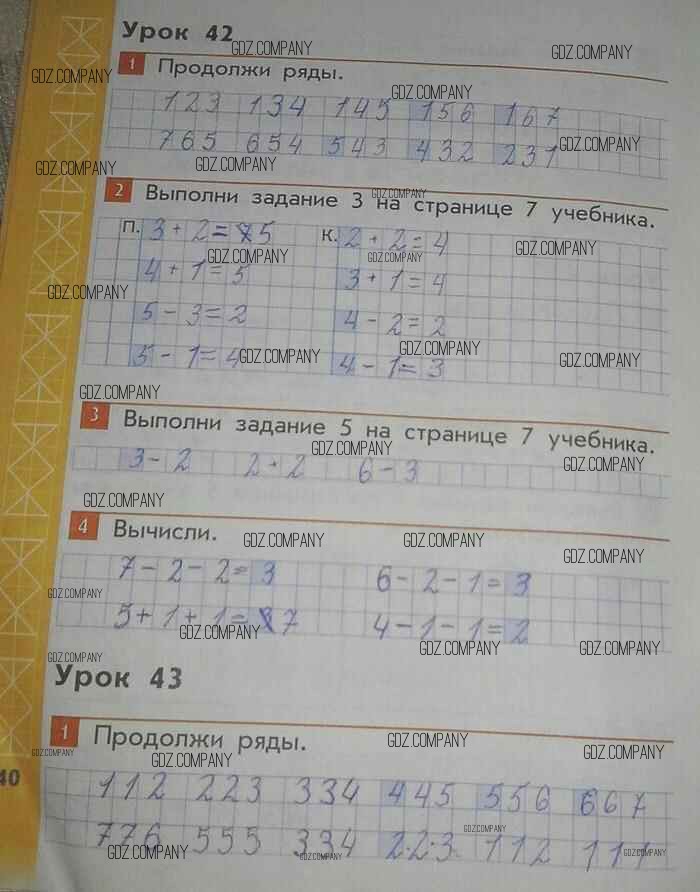 Урок 42
GDZ.COMPANY GDZ.COMPANY
1 Продолжи ряды.
GDZ.COMPANY GDZ.COMPANY
123 134 145 156 167
765 654 543 432 231
GDZ.COMPANY
GDZ.COMPANY GDZ.COMPANY
2 Выполни задание 3 на странице 7 учебника.
GDZ.COMPANY
П. 3 + 2 = 5 К. 2 + 2 = 4
GDZ.COMPANY GDZ.COMPANY GDZ.COMPANY
4 + 1 = 5 3 + 1 = 4
GDZ.COMPANY
5 - 3 = 2 4 - 2 = 2
GDZ.COMPANY GDZ.COMPANY GDZ.COMPANY
5 - 1 = 4 4 - 1 = 3
GDZ.COMPANY
3 Выполни задание 5 на странице 7 учебника.
GDZ.COMPANY GDZ.COMPANY
3 - 2 2 + 2 6 - 3
GDZ.COMPANY
4 Вычисли.
GDZ.COMPANY GDZ.COMPANY GDZ.COMPANY
7 - 2 - 2 = 3 6 - 2 - 1 = 3
GDZ.COMPANY
5 + 1 + 1 = 7 4 - 1 - 1 = 2
GDZ.COMPANY GDZ.COMPANY GDZ.COMPANY
GDZ.COMPANY
Урок 43
1 Продолжи ряды.
GDZ.COMPANY GDZ.COMPANY GDZ.COMPANY GDZ.COMPANY
40
112 223 334 445 556 667
776 555 334 2·2·3 112 111
GDZ.COMPANY GDZ.COMPANY GDZ.COMPANY GDZ.COMPANY